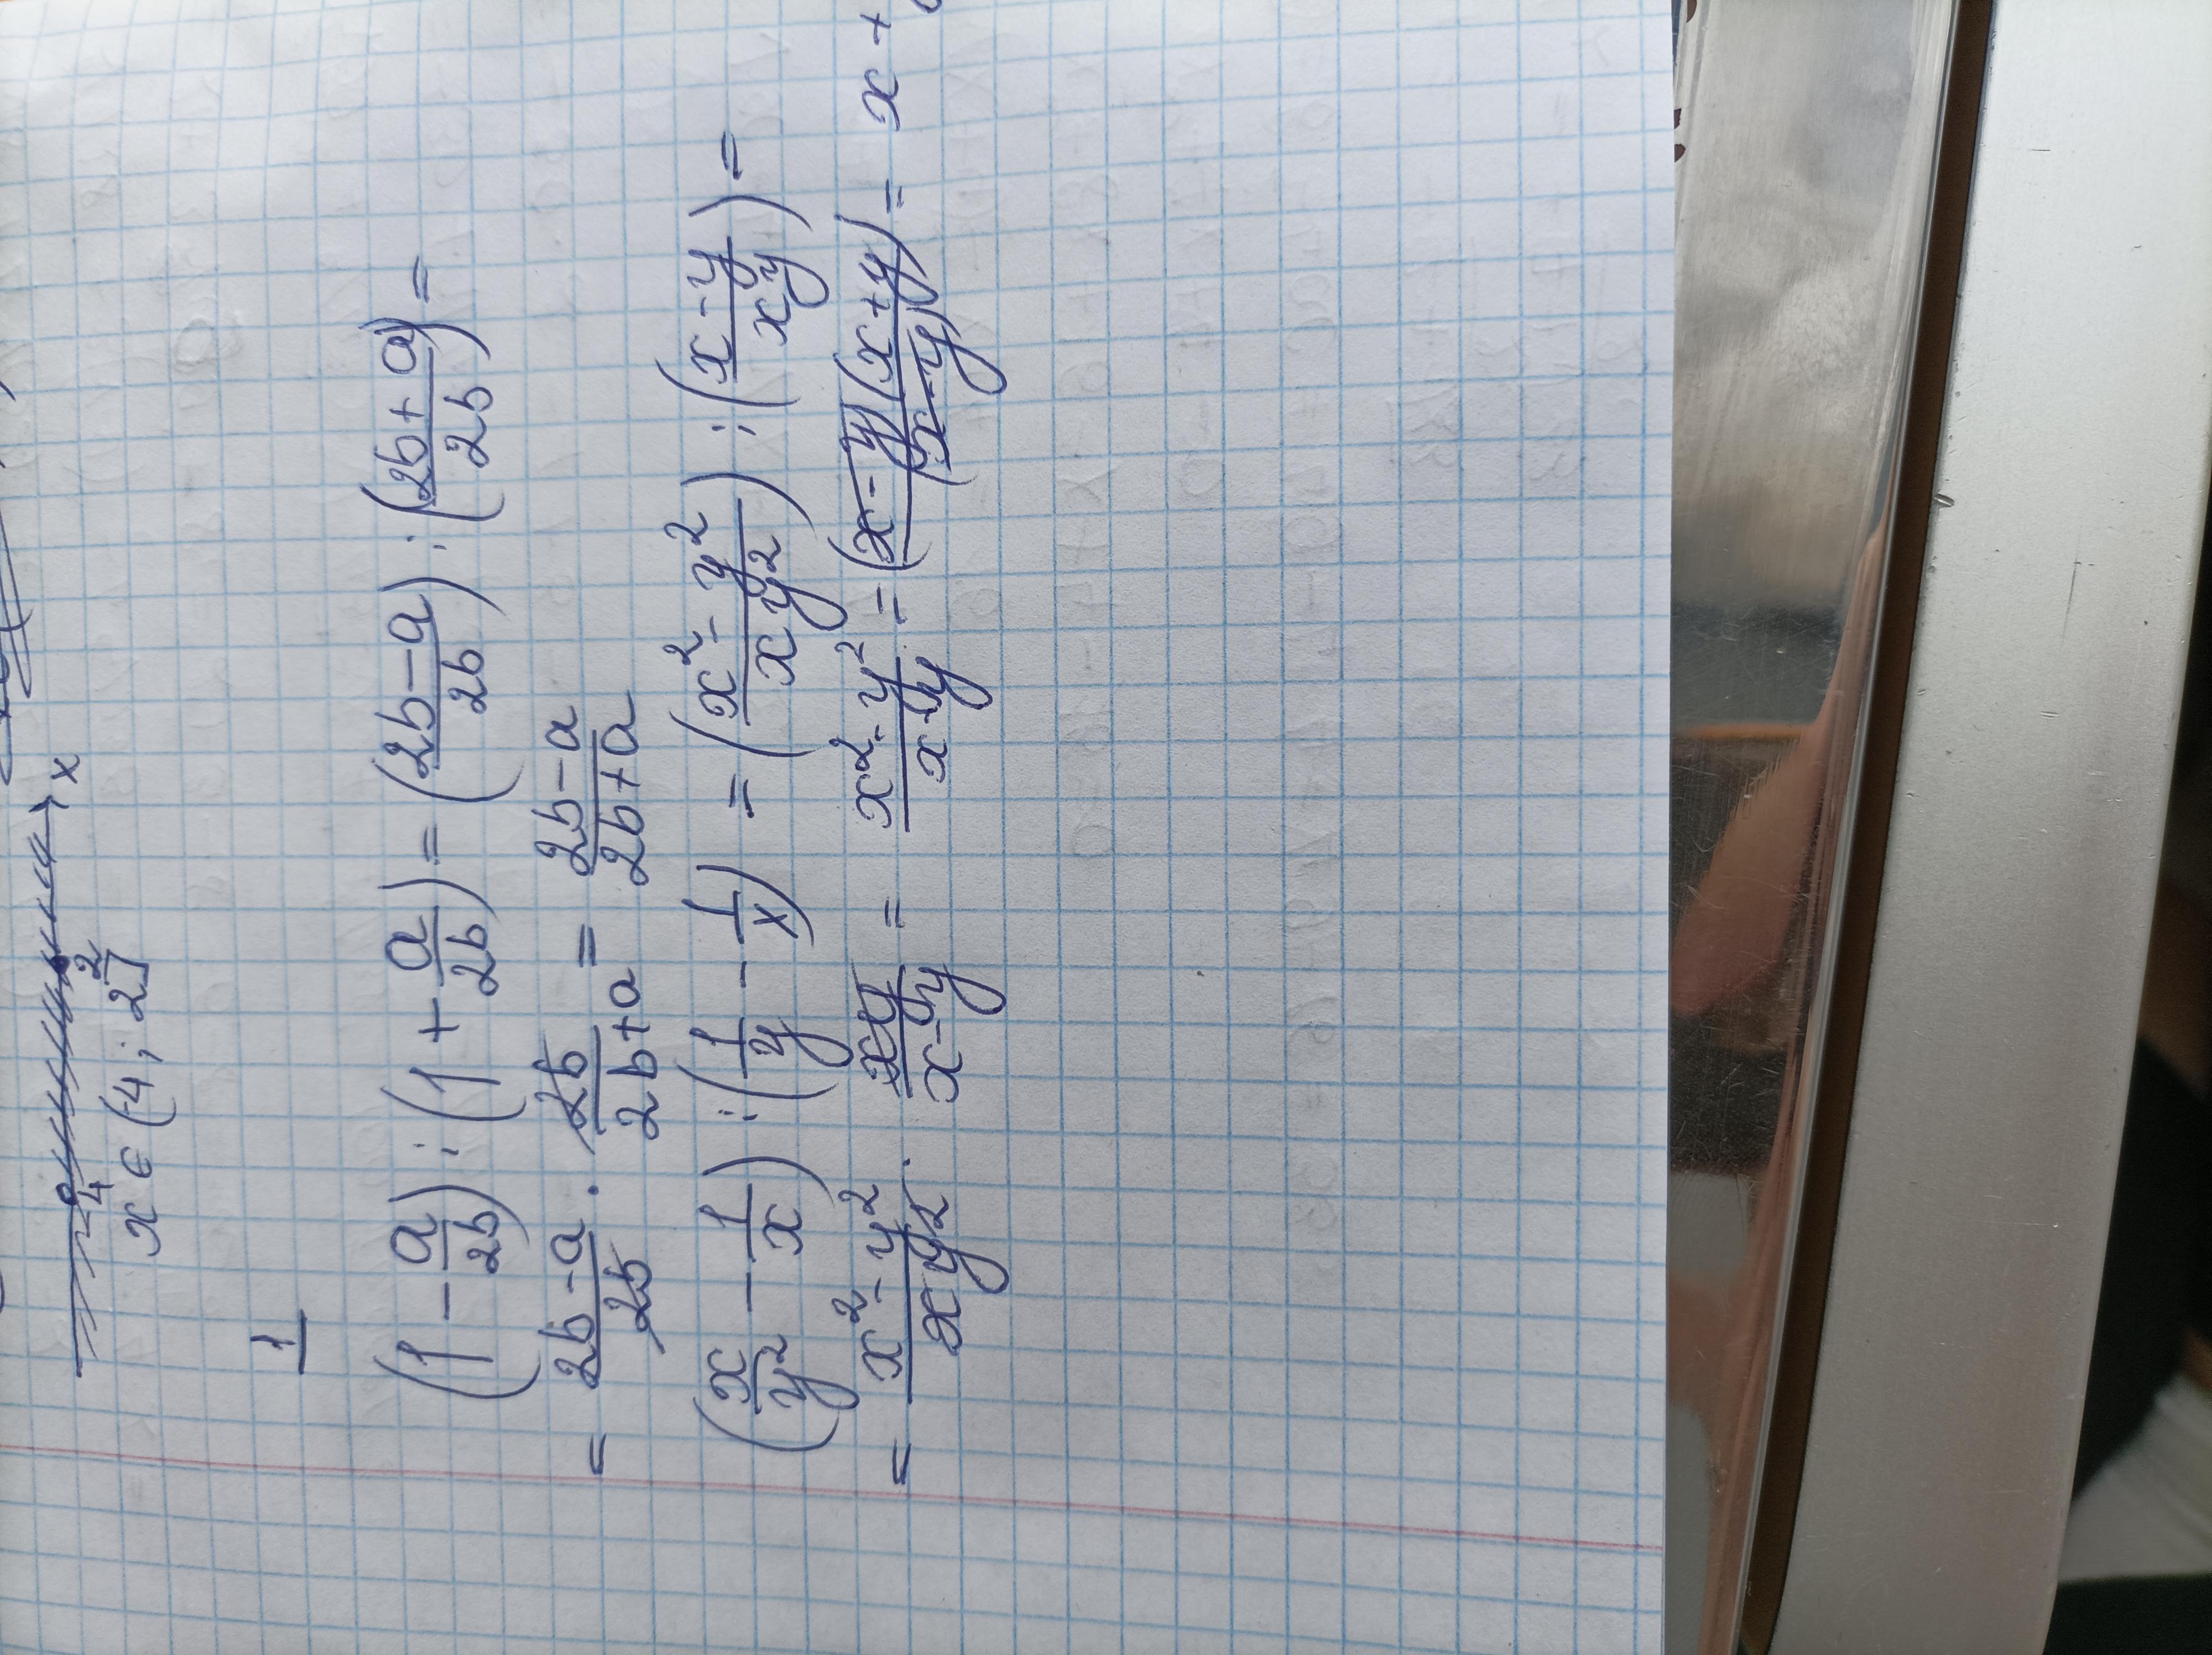 -4 2 x
x ∈ (-4; 2]
1
(1 - a/2b) : (1 + a/2b) = (2b-a/2b) : (2b+a/2b) =
= 2b-a/2b · 2b/2b+a = 2b-a/2b+a
(x/y² - 1/x) : (1/y - 1/x) = (x²-y²/xy²) : (x-y/xy) =
= x²-y²/xy² · xy/x-y = x²-y²/x-y = (x-y)(x+y)/(x-y) = x+